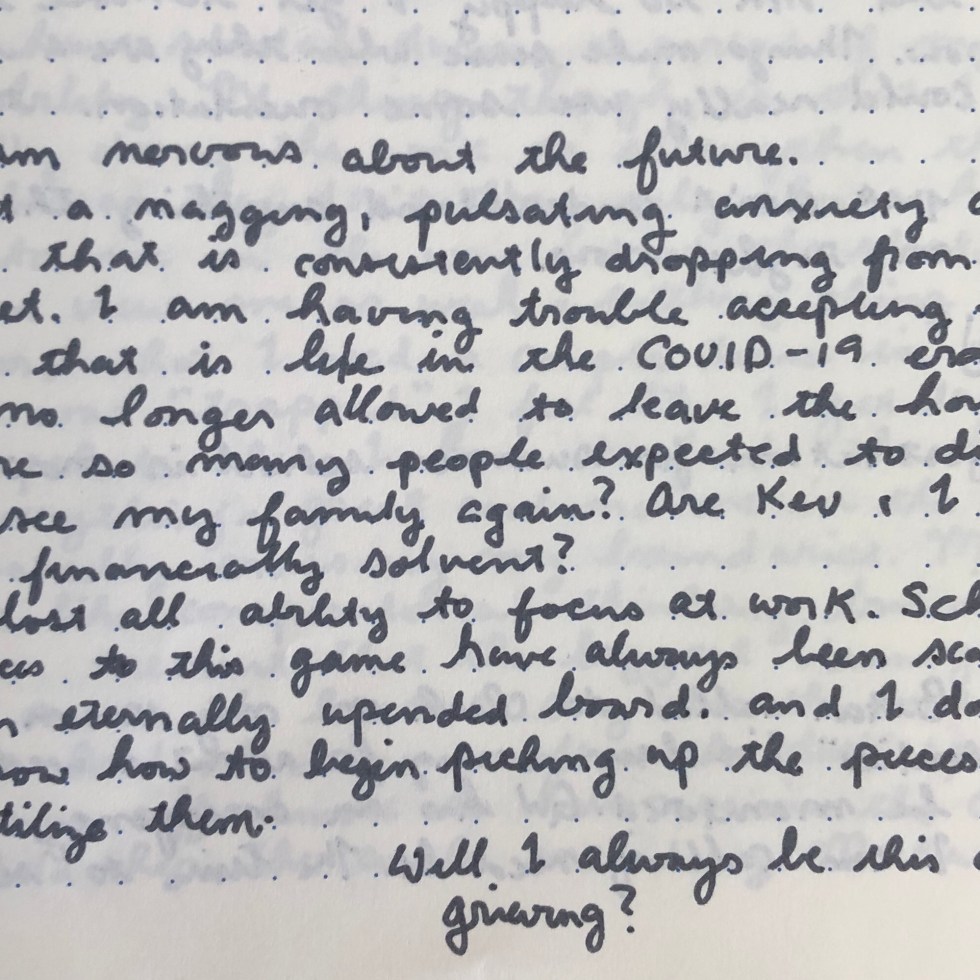 am nervous about the future.
a nagging, pulsating anxiety
that is consistently dropping from
I am having trouble accepting
that is life in the COVID-19 era
no longer allowed to leave the
so many people expected to
see my family again? Are Kev & I
financially solvent?
lost all ability to focus at work.
to this game have always been
eternally upended board. and I
how to begin picking up the pieces
them.
Will I always be this
grieving?